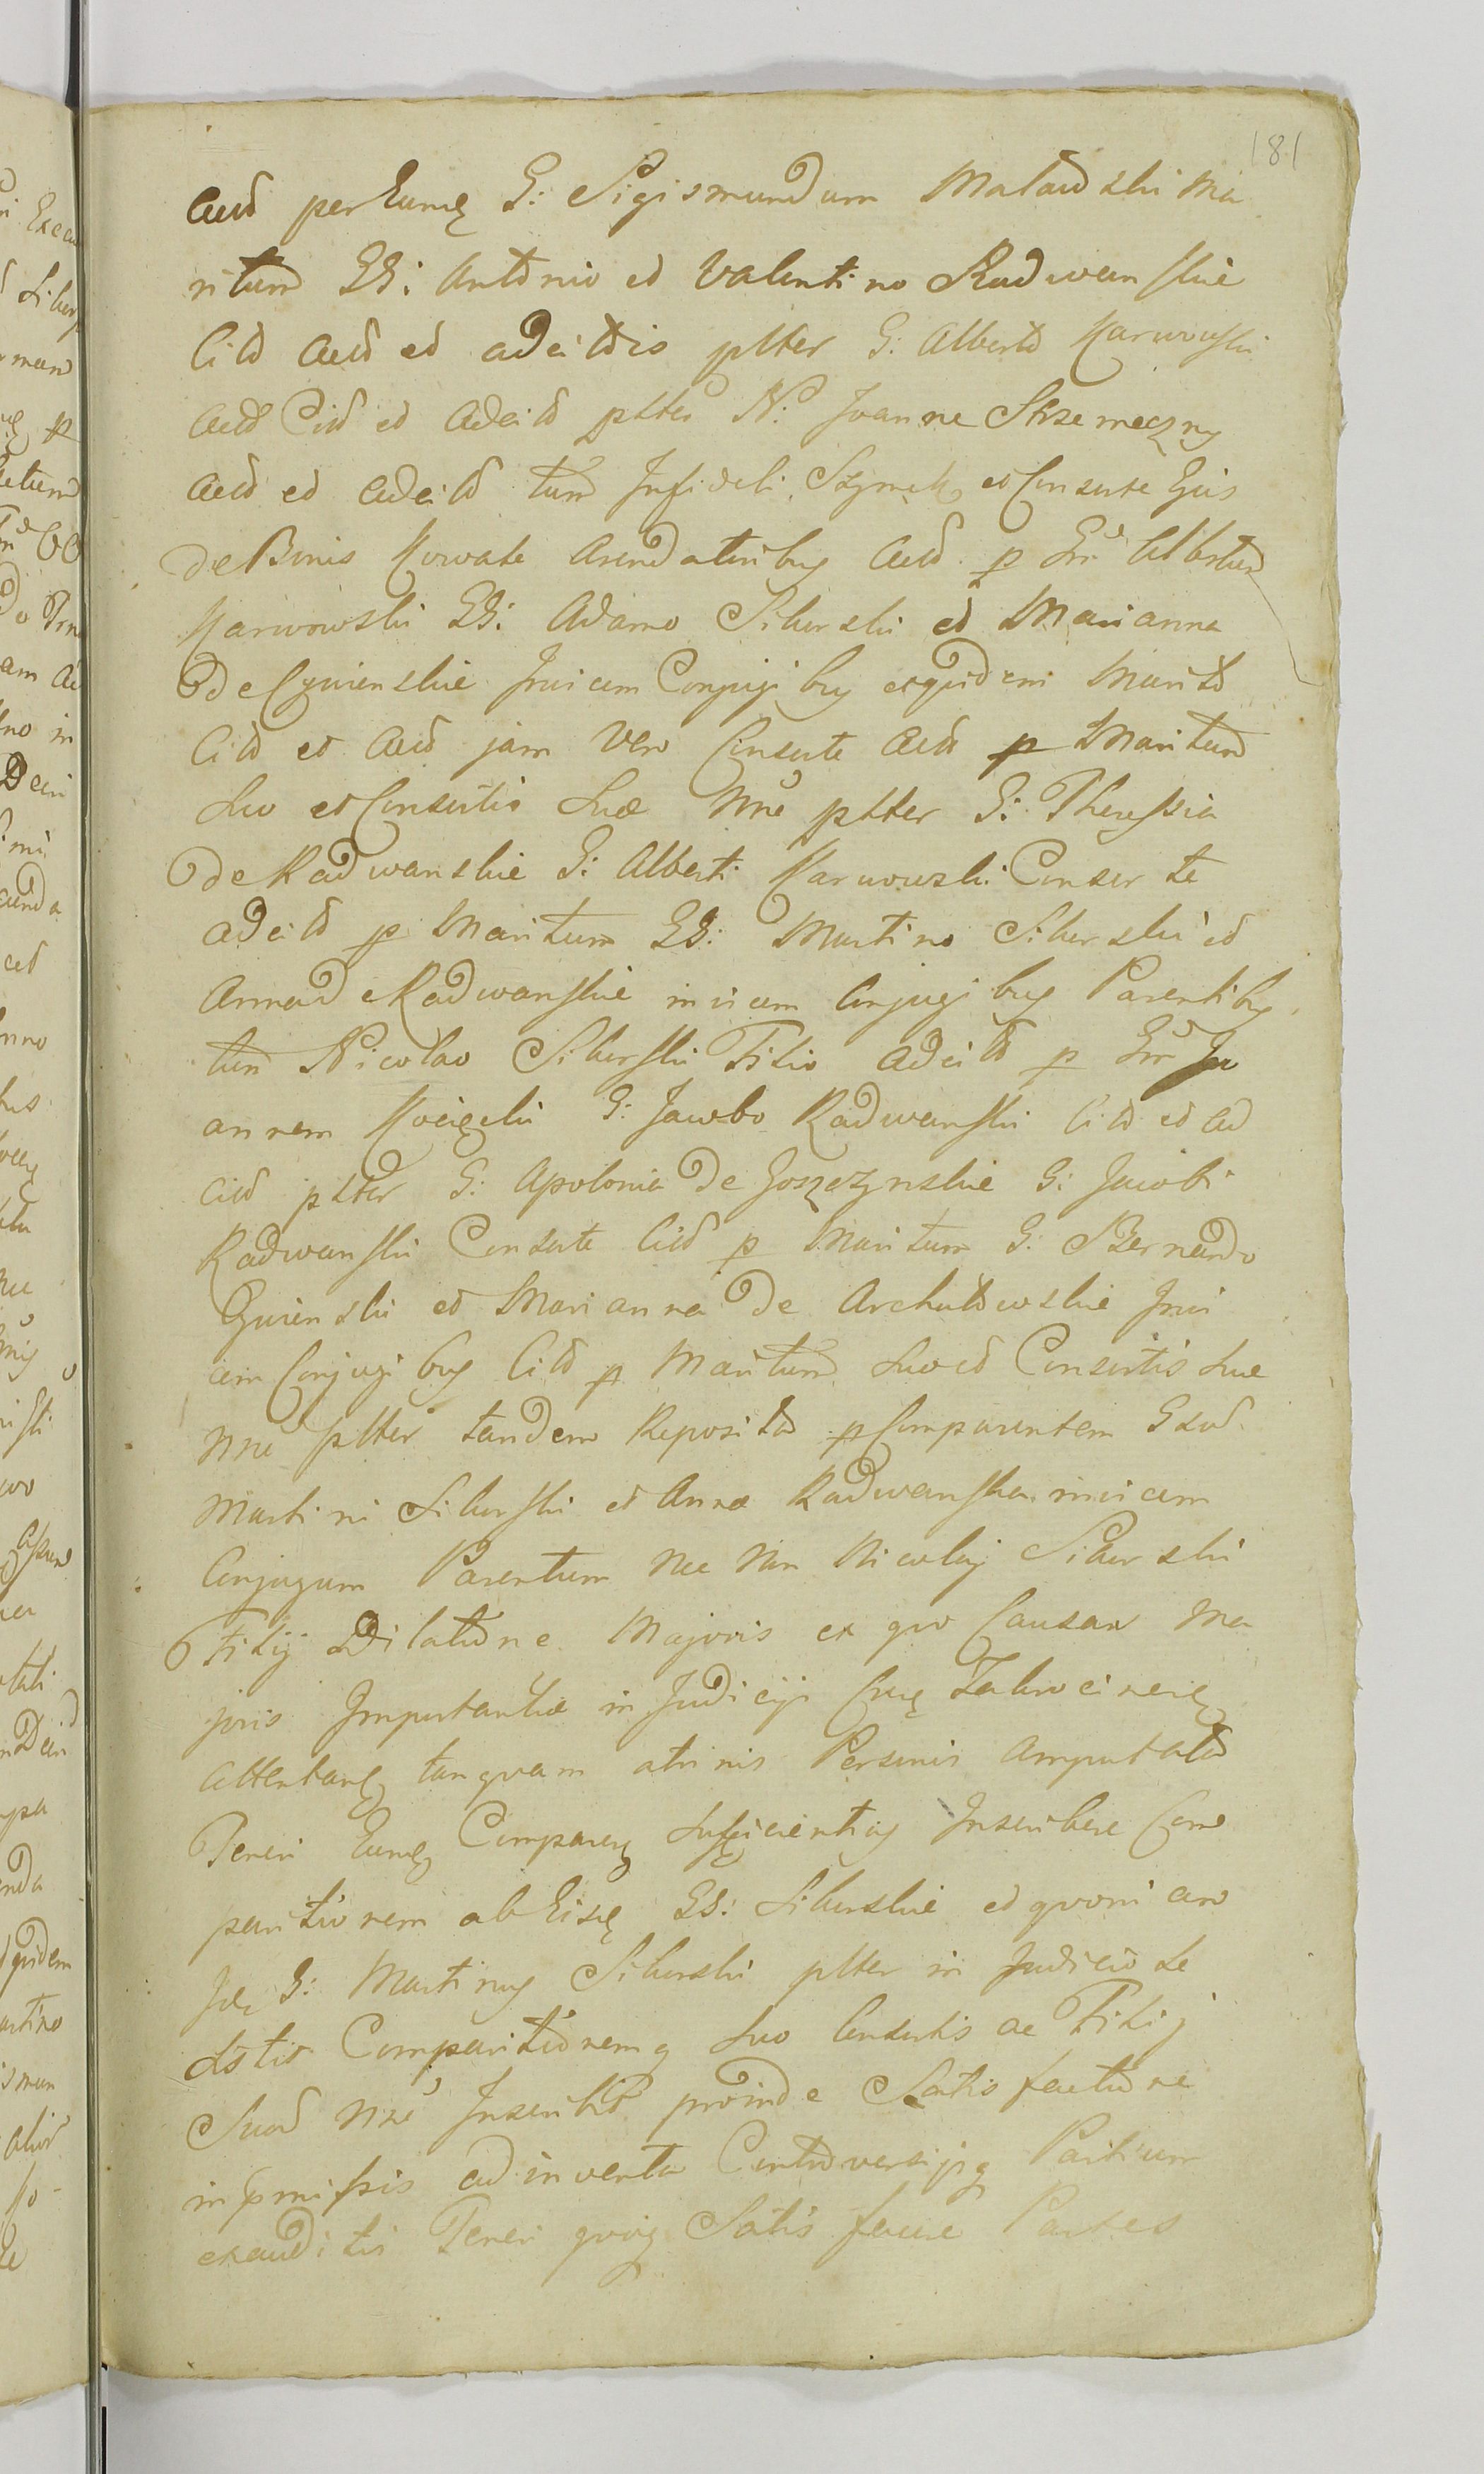 181
Actd per Eumq G: Sigismundum Matowski Ma
ritum GG: Antonio et Valentino Radwanskie
Citd Actd et adcittis pltter G: Alberto Karwowski
Actd Citd et adcitd pltter N: Joanne Strzemeczny
Actd et adcitd tum Infideli Szymek et Consorte Ejus
de Bonis Kowale Arendatoribq Actd p Gm Albertum
Karwowski GG: Adamo Sikorski et Marianna
de Cywinskie Invicem Conjugibq eoquidem Marito
Citd et Actd jam Vero Consorte Actd p Maritum
Suo et Consortis Suæ Nne pltter G: Theressia
de Radwanskie G: Alberti Karwowski Consorte
adcitd p Maritum GG: Martino Sikorski et
Anna de Radwanskie invicem Conjugibq Parentibq
tum Nicolao Sikorski Filio adcitd p Gm Jo
annem G: Jacobo Radwanski Citd et Ad
citd pltter G: Apolonia de Goszczynskie G: Jacobi
Radwanski Consorte Citd p Maritum G: Bernardo
Cywinski et Marianna de Archutowskie Invi
cem Conjugibq Citd p Maritum Suo et Consortis Suæ
Nne pltter tandem Reposita p Comparentem Gsod
Martini Sikorski et Annæ Radwanska invicem
Conjugum Parentum nec non Nicolaj Sikorski
Filij Dilatione Majoris ex quo Causam Ma
joris Importantiæ in Judicijs
Attentanq tanquam Personis Amputata
Teneri Eumq Comparenq Sufficientius Inscribere Com
paritionem ab Eisq GG: Sikorskie et quoniam
Idq G: Martinus Sikorski pltter in Judicio Se
Comparitionemq Suo Consortis ac Filij
Suod Nne Inscribit proinde Satisfactione
in pmissis adinventa Controversijsq Partium
exauditis Teneri quoq Satis facere Partes